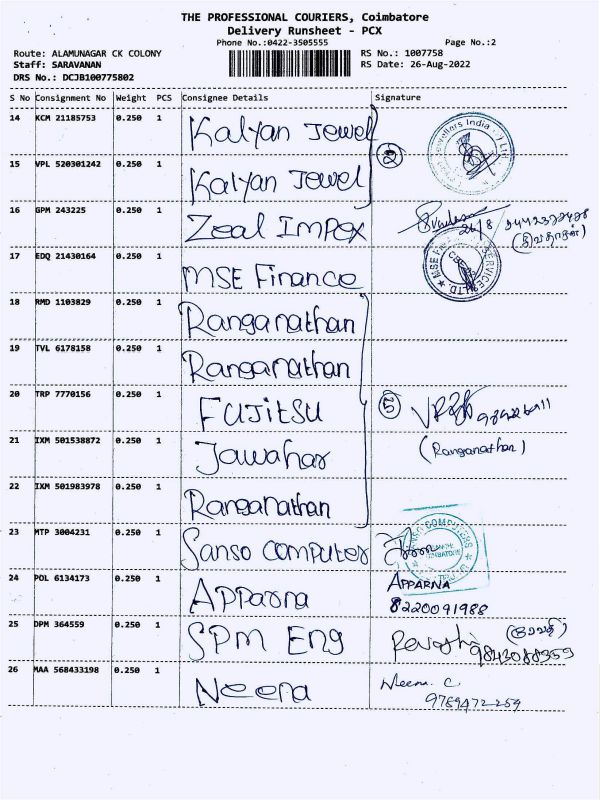 THE PROFESSIONAL COURIERS, Coimbatore
Delivery Runsheet - PCX
Phone No.:0422-3505555 Page No.:2
Route: ALAMUNAGAR CK COLONY RS No.: 1007758
Staff: SARAVANAN RS Date: 26-Aug-2022
DRS No.: DCJB100775802
S No Consignment No Weight PCS Consignee Details Signature
14 KCM 21185753 0.250 1 Kalyan Jewel
15 VPL 520301242 0.250 1 Kalyan Jewel
16 GPM 243225 0.250 1 Zeal Impex 26/8
17 EDQ 21430164 0.250 1 MSE Finance
18 RMD 1103829 0.250 1 Ranganathan
19 TVL 6178158 0.250 1 Ranganathan
20 TRP 7770156 0.250 1 FUJITSU 5
21 IXM 501538872 0.250 1 Jawahar (Ranganathan)
22 IXM 501983978 0.250 1 Ranganathan
23 MTP 3004231 0.250 1 Sanso Computer
24 POL 6134173 0.250 1 Apparna APPARNA
8220091988
25 DPM 364559 0.250 1 SPM Eng Revathi (ரேவதி)
9843088359
26 MAA 568433198 0.250 1 Neena Neena. C
9789472259